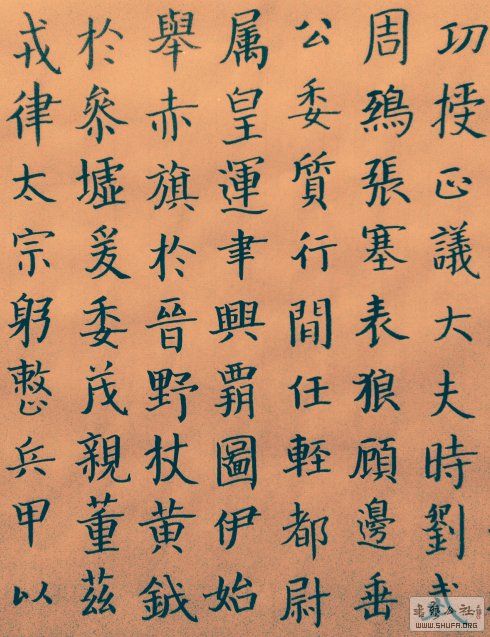 功授正議大夫時劉武
周鵄張塞表狼顧邊垂
公委質行間任輕都尉
属皇運聿興霸圖伊始
舉赤旗於晉野杖黃鉞
於叅墟爰委茂親董茲
戎律太宗躬整兵甲以
WWW.SHUFA.ORG